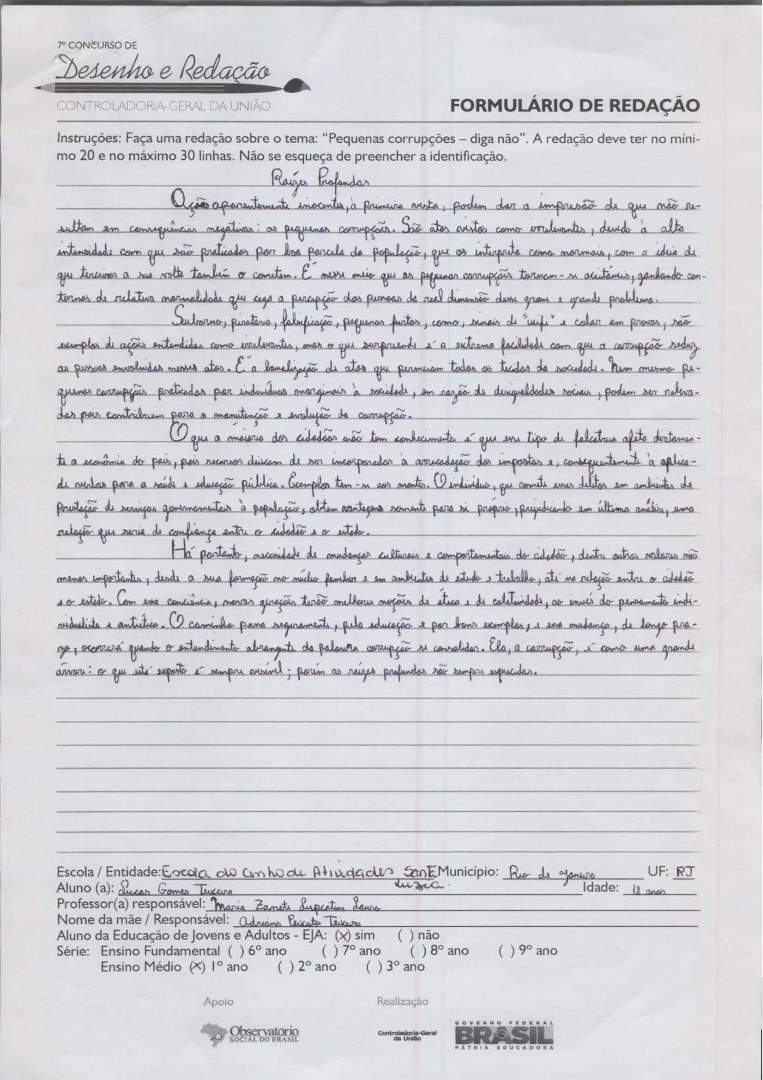 7º CONCURSO DE
Desenho e Redação
CONTROLADORIA-GERAL DA UNIÃO
FORMULÁRIO DE REDAÇÃO
Instruções: Faça uma redação sobre o tema: “Pequenas corrupções – diga não”. A redação deve ter no míni-
mo 20 e no máximo 30 linhas. Não se esqueça de preencher a identificação.
Raízes Profundas
Ações aparentemente inocentes, à primeira vista, podem dar a impressão de que não re-
sultam em consequências negativas: as pequenas corrupções. São atos vistos como irrelevantes, devido à alta
intensidade com que são praticados por boa parcela da população, que os interpreta como normais, com a ideia de
que terceiros a sua volta também o cometem. É nesse meio que as pequenas corrupções tornam-se aceitáveis, ganhando con-
tornos de relativa normalidade que cega a percepção das pessoas da real dimensão desse grave e grande problema.
Suborno, pirataria, falsificação, pequenos furtos, como, sinais de "wifi" e colar em provas, são
exemplos de ações entendidas como irrelevantes, mas o que surpreende é a extrema facilidade com que a corrupção seduz
as pessoas envolvidas nesses atos. É a banalização de atos que permeiam todos os tecidos da sociedade. Nem mesmo pe-
quenas corrupções praticadas por indivíduos marginais à sociedade, em razão de desigualdades sociais, podem ser releva-
das pois contribuem para a manutenção e evolução da corrupção.
O que a maioria dos cidadãos não tem conhecimento é que esse tipo de falcatrua afeta diretamen-
te a economia do país, pois recursos deixam de ser incorporados à arrecadação dos impostos e, consequentemente à aplica-
de verbas para a saúde e educação pública. Exemplos tem-se aos montes. O indivíduo, que comete esses delitos em ambientes de
prestação de serviços governamentais à população, obtem vantagens somente para si próprio, prejudicando em última análise, uma
relação que seria de confiança entre o cidadão e o estado.
Há portanto, necessidade de mudanças culturais e comportamentais do cidadão, dentre outros valores não
menos importantes, desde a sua formação no núcleo familiar e em ambientes de estudo e trabalho, até na relação entre o cidadão
e o estado. Com essa conciência, novas gerações terão melhores noções de ética e de coletividade, ao invés do pensamento indi-
vidualista e antiético. O caminho passa seguramente, pela educação e por bons exemplos, e essa mudança, de longo pra-
zo, ocorrerá quando o entendimento abrangente da palavra corrupção se consolidar. Ela, a corrupção, é como uma grande
árvore: o que está exposto é sempre visível; porém as raízes profundas são sempre esquecidas.
Escola / Entidade: Escola do Município: Rio de Janeiro UF: RJ
Aluno (a): Lucas Gomes Teixeira Idade: anos
Professor(a) responsável: Maria
Nome da mãe / Responsável: Adriana Peixoto Teixeira
Aluno da Educação de Jovens e Adultos - EJA: (x) sim ( ) não
Série: Ensino Fundamental ( ) 6º ano ( ) 7º ano ( ) 8º ano ( ) 9º ano
Ensino Médio (x) 1º ano ( ) 2º ano ( ) 3º ano
Apoio Realização
Observatório
SOCIAL DO BRASIL
Controladoria-Geral
da União
GOVERNO FEDERAL
BRASIL
PÁTRIA EDUCADORA